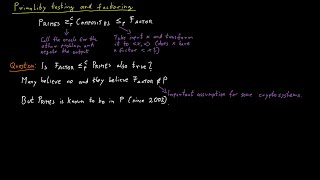 Primality testing and factoring
PRIMES ≤ᶜₜ COMPOSITES ≤ₚ FACTOR
Call the oracle for the other problem and negate the output
Take input x and transform it to <x, > (does x have a factor < )
Question: Is FACTOR PRIMES also true?
Many believe no and they believe FACTOR ∉ P
Important assumption for some cryptosystems.
But PRIMES is known to be in P (since 2002).